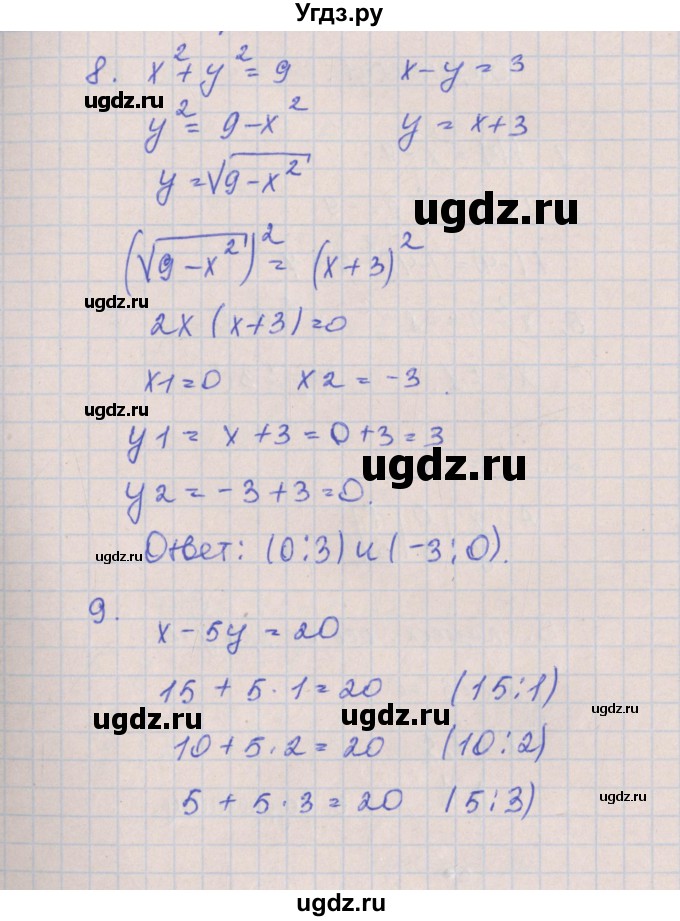 Угдз.ру
8. x² + y² = 9 x - y = 3
ugdz.ru
y² = 9 - x² y = x + 3
y = √9 - x²
ugdz.ru
(√9 - x²)² = (x + 3)²
ugdz.ru
2x (x + 3) = 0
x1 = 0 x2 = -3.
ugdz.ru
y1 = x + 3 = 0 + 3 = 3
ugdz.ru
y2 = -3 + 3 = 0.
Ответ: (0; 3) и (-3; 0).
ugdz.ru
9. x - 5y = 20
15 + 5 · 1 = 20 (15; 1)
ugdz.ru ugdz.ru ugdz.ru
10 + 5 · 2 = 20 (10; 2)
5 + 5 · 3 = 20 (5; 3)
ugdz.ru
ugdz.ru